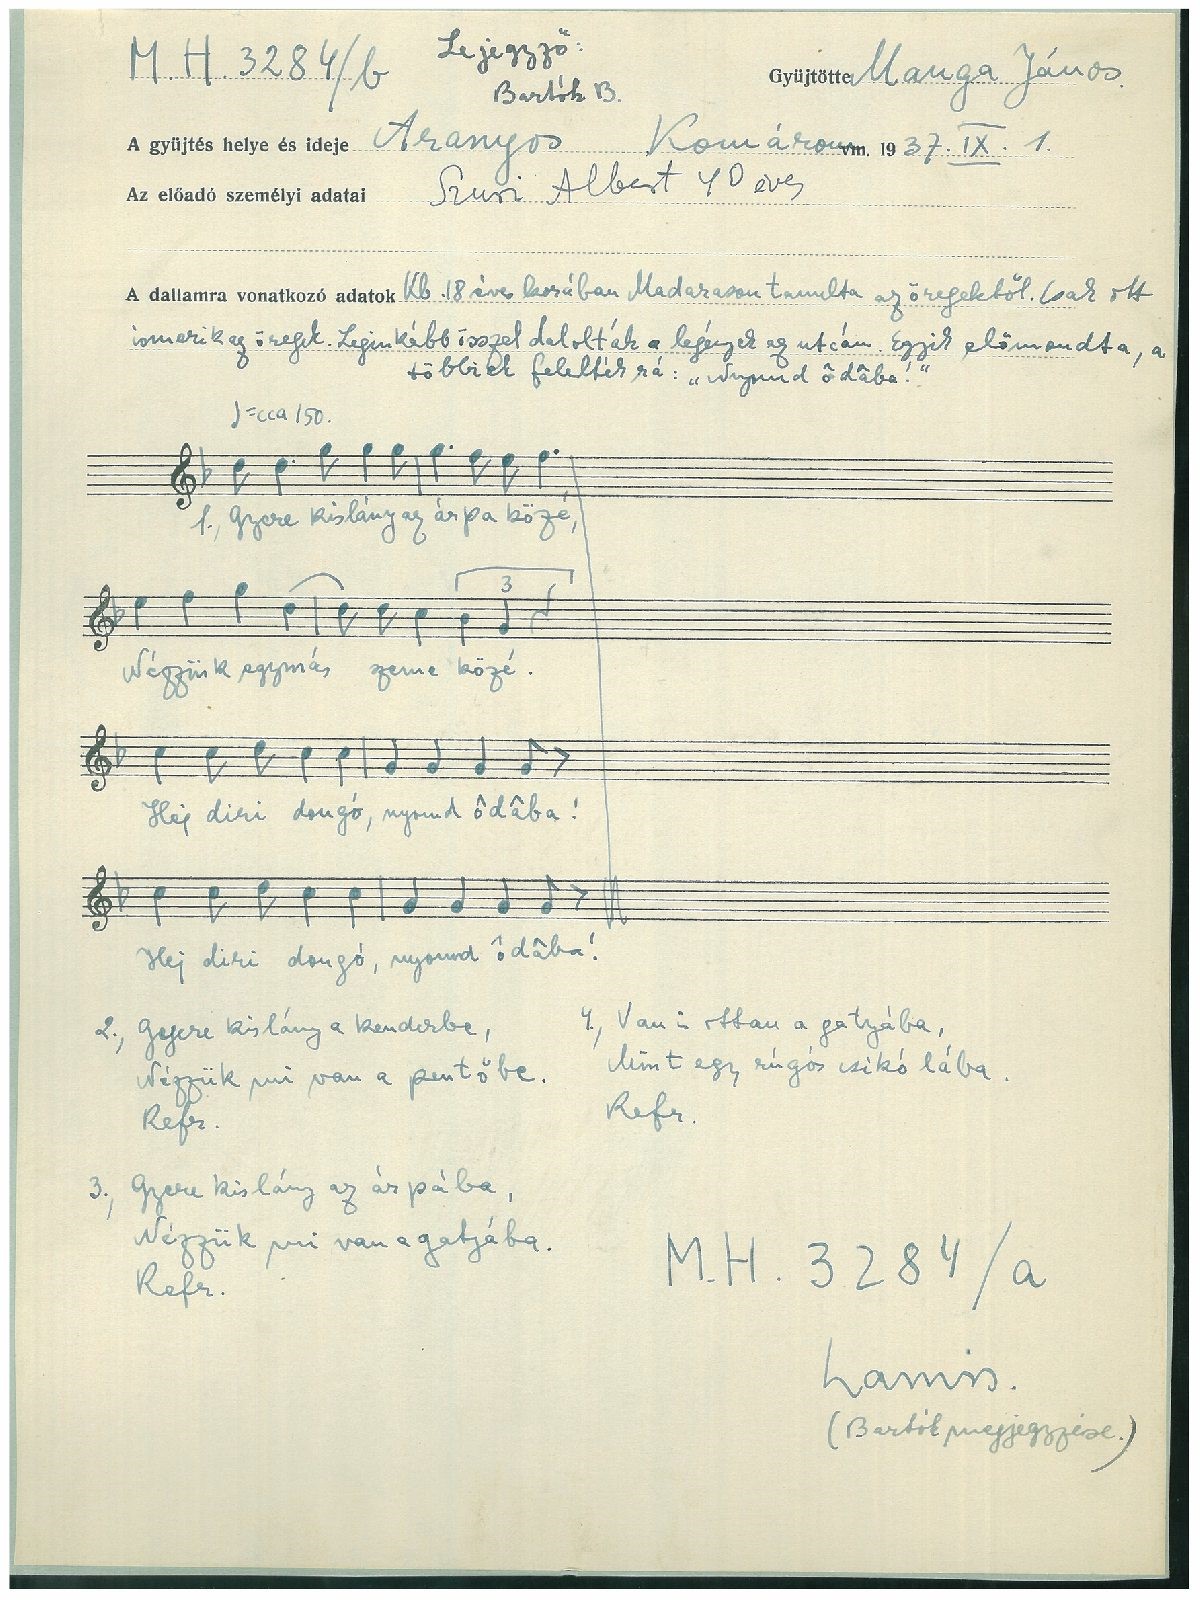 M. H. 3284/b
Lejegyző:
Bartók B.
Gyüjtötte Manga János.
A gyüjtés helye és ideje Aranyos Komárom vm. 1937. IX. 1.
Az előadó személyi adatai Szusi Albert 40 éves
A dallamra vonatkozó adatok Kb. 18 éves korában Madarason tanulta az öregektől. Csak ott
ismerik az öregek. Leginkább ősszel dalolták a legények az utcán. Egyik előmondta, a
többiek felelték rá: „Nyomd ôdâba!"
♩=cca 150.
1., Gyere kislány az árpa közé,
3
Nézzük egymás szeme közé.
Hej diri dongó, nyomd ôdâba!
Hej diri dongó, nyomd ôdâba!
2., Gyere kislány a kenderbe,
Nézzük mi van a pentőbe.
Refr.
3., Gyere kislány az árpába,
Nézzük mi van a gatyába.
Refr.
4., Van is ottan a gatyába,
Mint egy rúgós csikó lába.
Refr.
M.H. 3284/a
hamis.
(Bartók megjegyzése.)